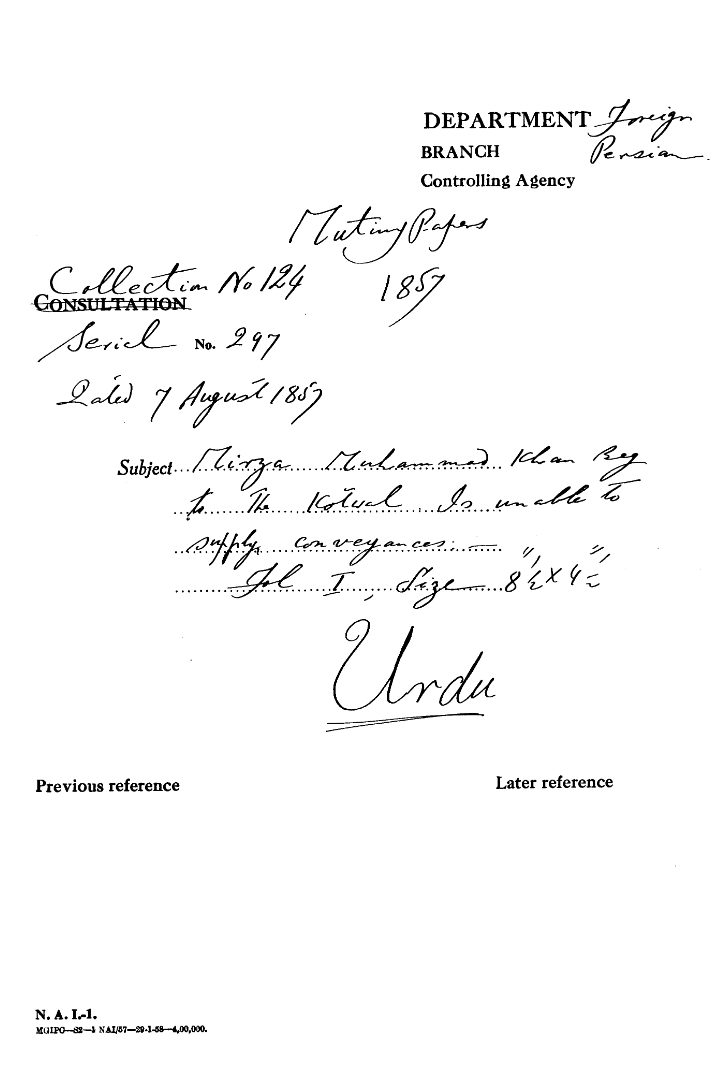 DEPARTMENT Foreign
BRANCH Persian
Controlling Agency
Mutiny Papers
1857
Collection No 124
CONSULTATION
Serial No. 297
Dated 7 August 1857
Subject Mirza Muhammad Khan Beg
to The Kotwal Is unable to
supply conveyances.
Fol I, Size 8½" X 4½"
Urdu
Previous reference
Later reference
N. A. I.-1.
MGIPO—S2—1 NAI/57—29-1-58—4,00,000.